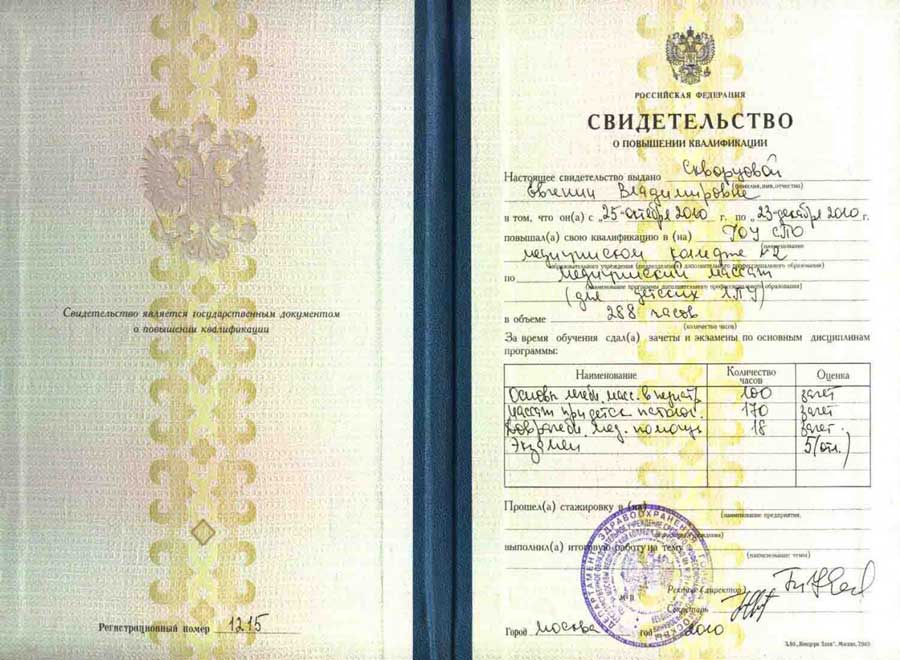 Свидетельство является государственным документом
о повышении квалификации
Регистрационный номер 1215
РОССИЙСКАЯ ФЕДЕРАЦИЯ
СВИДЕТЕЛЬСТВО
О ПОВЫШЕНИИ КВАЛИФИКАЦИИ
Настоящее свидетельство выдано Скворцовой
Евгении Владимировне
(фамилия, имя, отчество)
в том, что он(а) с „25“ октября 2010 г. по „23“ декабря 2010 г.
повышал(а) свою квалификацию в (на) ГОУ СПО
(наименование
медицинском колледже №2
образовательного учреждения (подразделения) дополнительного профессионального образования)
по медицинский массаж
(наименование программы дополнительного профессионального образования)
(для детских ЛПУ)
в объеме 288 часов
(количество часов)
За время обучения сдал(а) зачеты и экзамены по основным дисциплинам
программы:
Наименование Количество часов Оценка
Основы лечебн. масс. в педиатр. 100 зачет
Массаж при детск. патолог. 170 зачет
Доврачебн. мед. помощь 18 зачет.
Экзамен 5 (отл.)
Прошел(а) стажировку в (на)
(наименование предприятия,
организации, учреждения)
выполнил(а) итоговую работу на тему
(наименование темы)
Ректор (директор)
М П
Секретарь
Город Москва год 2010